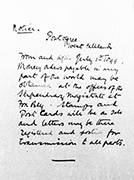 Notice.
Post Office
From and after July 1st 18
Money orders payable in any
part of the world may be
obtained at the offices of the
Stipendiary Magistrate at
for Fiji. Stamps and
Post Cards will be on sale
and letters may be there
registered and posted for
transmission to all parts.